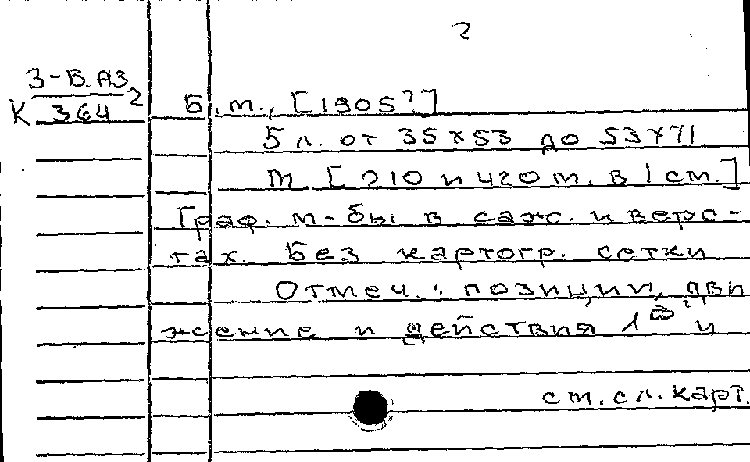 2
3-В.АЗ
К 364 2
Б.м., [1905?]
5 л. от 35×53 до 53×71
М [210 и 420 м. в 1 см.]
Граф. м-бы в саж. и верс-
тах. Без картогр. сетки
Отмеч.: позиции, дви
жение и действия 1ой и
см. сл. карт.